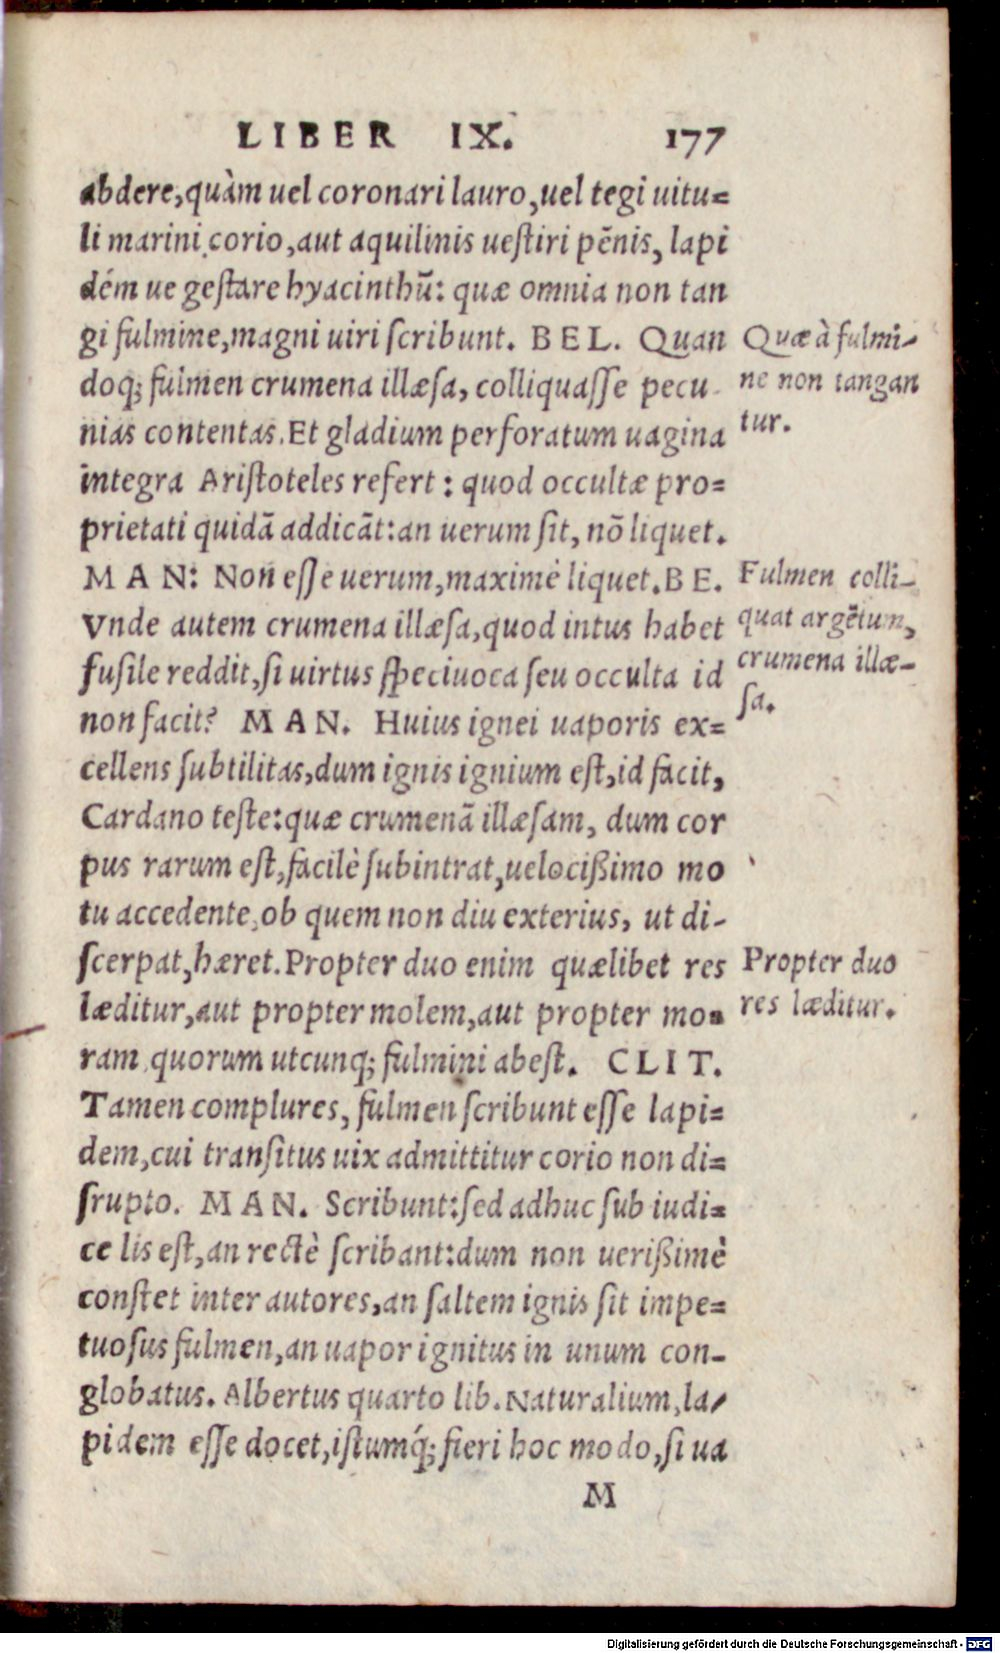 LIBER IX. 177
abdere,quàm uel coronari lauro,uel tegi uitu=
li marini corio,aut aquilinis uestiri pēnis, lapi
dém ue gestare hyacinthū: quæ omnia non tan
gi fulmine,magni uiri scribunt. BEL. Quan
doq; fulmen crumena illæsa, colliquasse pecu
nias contentas. Et gladium perforatum uagina
integra Aristoteles refert: quod occultæ pro=
prietati quidā addicāt: an uerum sit, nō liquet.
MAN: Non esse uerum,maximè liquet.BE.
Vnde autem crumena illæsa,quod intus habet
fusile reddit,si uirtus speciuoca seu occulta id
non facit? MAN. Huius ignei uaporis ex=
cellens subtilitas,dum ignis ignium est,id facit,
Cardano teste:quæ crumenā illæsam, dum cor
pus rarum est,facilè subintrat,uelocißimo mo
tu accedente,ob quem non diu exterius, ut di-
scerpat,hæret.Propter duo enim quælibet res
læditur,aut propter molem,aut propter mo=
ram,quorum utcunq; fulmini abest. CLIT.
Tamen complures, fulmen scribunt esse lapi=
dem,cui transitus uix admittitur corio non di=
srupto. MAN. Scribunt:sed adhuc sub iudi=
ce lis est,an rectè scribant:dum non uerißimè
constet inter autores,an saltem ignis sit impe=
tuosus fulmen,an uapor ignitus in unum con-
globatus. Albertus quarto lib. Naturalium,la-
pidem esse docet,istumq́; fieri hoc modo,si ua
M
Quæ à fulmi-
ne non tangan
tur.
Fulmen colli-
quat argētum,
crumena illæ-
sa.
Propter duo
res læditur.
Digitalisierung gefördert durch die Deutsche Forschungsgemeinschaft - DFG